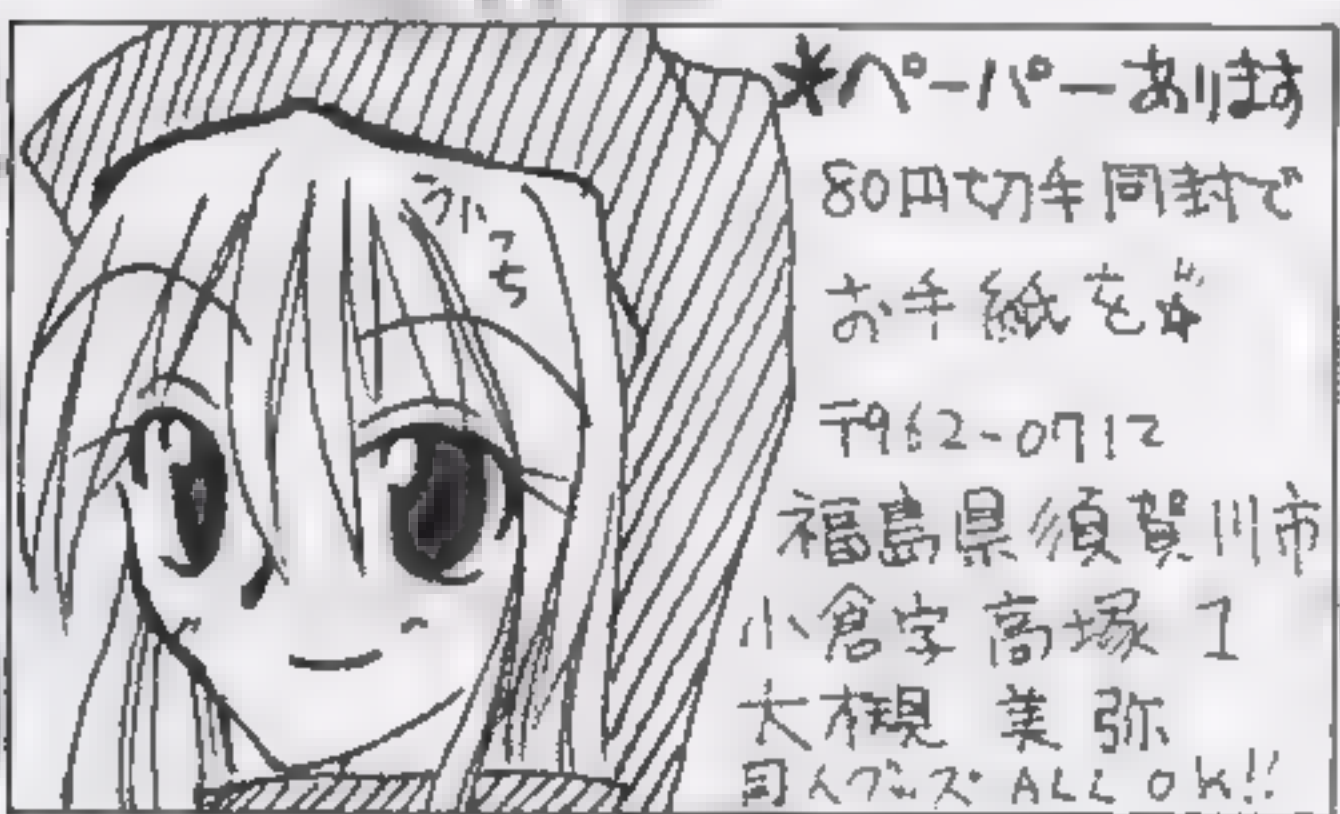 *ペーパーあります
80円切手同封で
お手紙を☆
〒962-0712
福島県須賀川市
小倉字高塚1
大槻 美弥
同人グッズ ALL OK!!